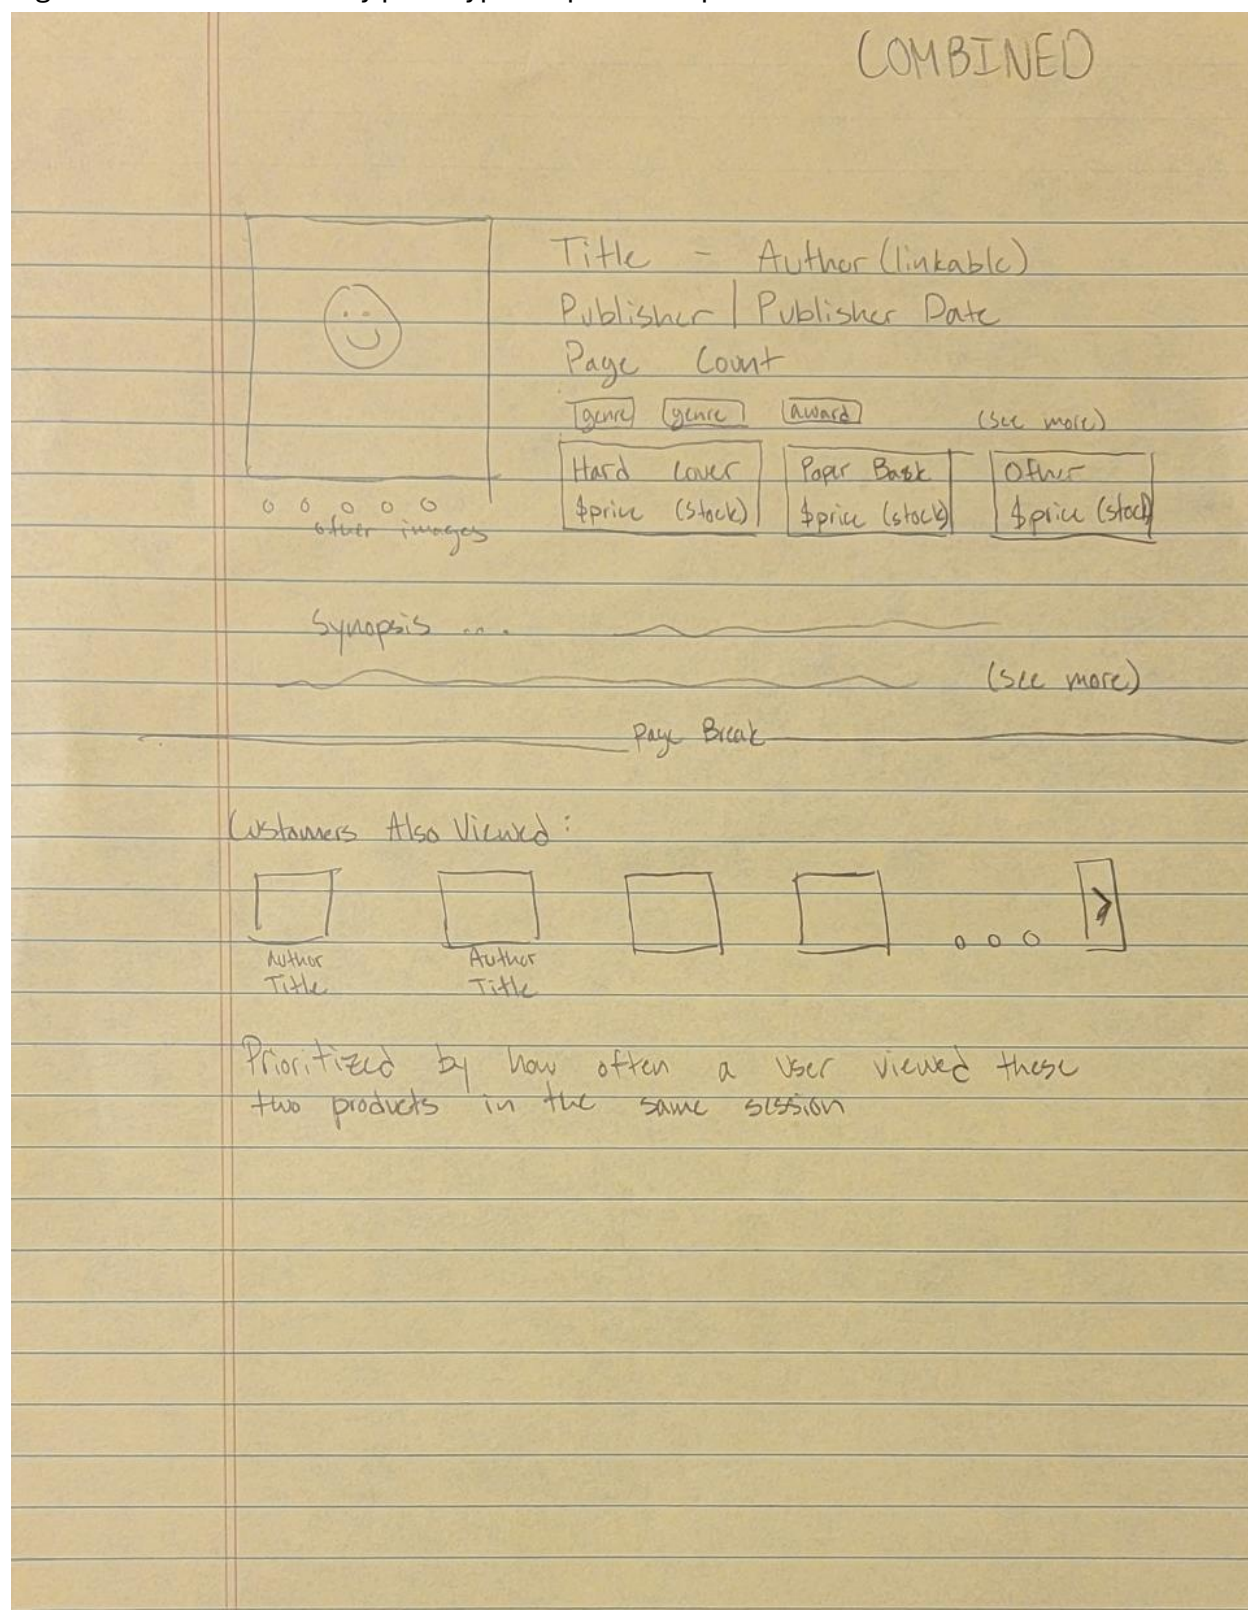 COMBINED
Title - Author (linkable)
Publisher | Publisher Date
Page Count
genre genre award (see more)
Hard Cover Paper Back Other
$price (stock) $price (stock) $price (stock)
other images
Synopsis ...
(see more)
Page Break
Customers Also Viewed:
Author Author
Title Title
Prioritized by how often a user viewed these
two products in the same session